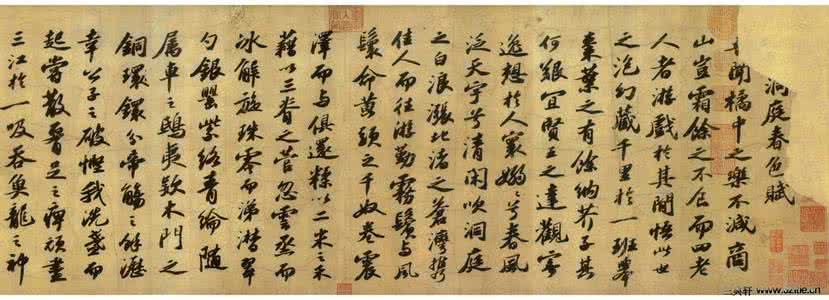 洞庭春色賦
聞橘中之樂不減商
山豈霜餘之不食而四老
人者游戲於其間悟此世
之泡幻藏千里於一班舉
棗葉之有餘納芥子其
何艱宜賢王之達觀寄
逸想於人寰嫋嫋兮春風
泛天宇兮清閑吹洞庭
之白浪漲北渚之蒼灣攜
佳人而往游勤霧鬢與風
鬟命黃頭之千奴卷震
澤而與俱還糅以二米之禾
藉以三脊之菅忽雲烝而
冰解旋珠零而涕潸翠
勺銀罌紫絡青綸隨
屬車之鴟夷款木門之
銅環鐶分帝觴之餘瀝
幸公子之破慳我洗盞而
起嘗散腰足之痺頑盡
三江於一吸吞魚龍之神